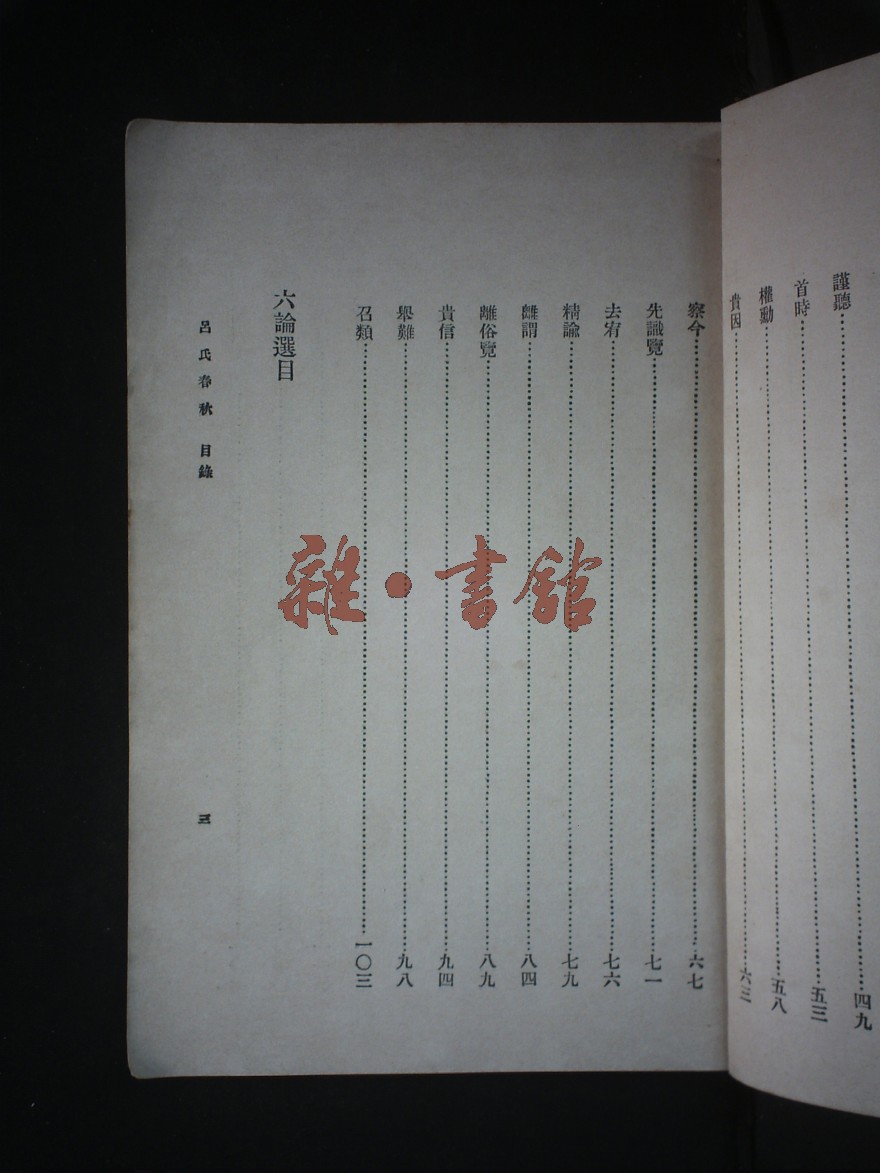 謹聽⋯⋯四九
首時⋯⋯五三
權勳⋯⋯五八
貴因⋯⋯六三
察今⋯⋯六七
先識覽⋯⋯七一
去宥⋯⋯七六
精諭⋯⋯七九
離謂⋯⋯八四
離俗覽⋯⋯八九
貴信⋯⋯九四
舉難⋯⋯九八
召類⋯⋯一〇三
六論選目
呂氏春秋 目錄 三
雜·書館